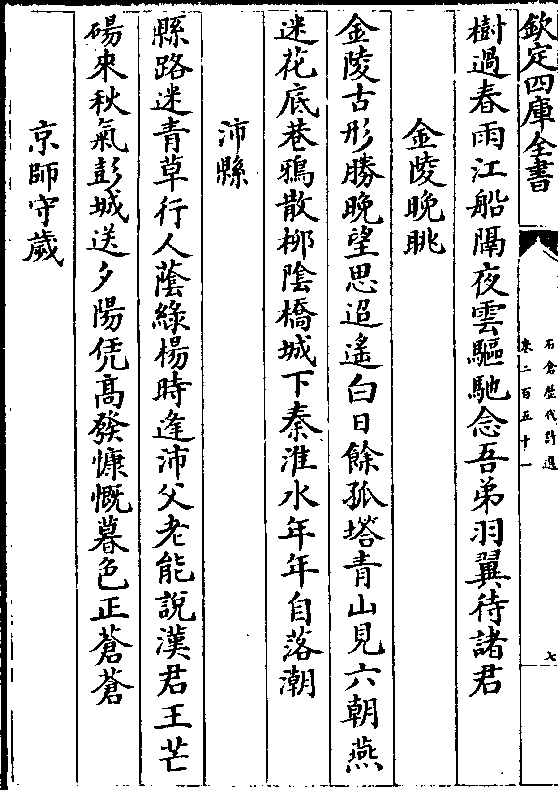 欽定四庫全書
石倉歷代詩選
卷二百五十一
七
樹過春雨江船隔夜雲驅馳念吾弟羽翼待諸君
金陵晚眺
金陵古形勝晚望思迢遙白日餘孤塔青山見六朝燕
迷花底巷鴉散柳陰橋城下秦淮水年年自落潮
沛縣
縣路迷青草行人蔭綠楊時逢沛父老能說漢君王芒
碭來秋氣彭城送夕陽凭高發慷慨暮色正蒼蒼
京師守歲